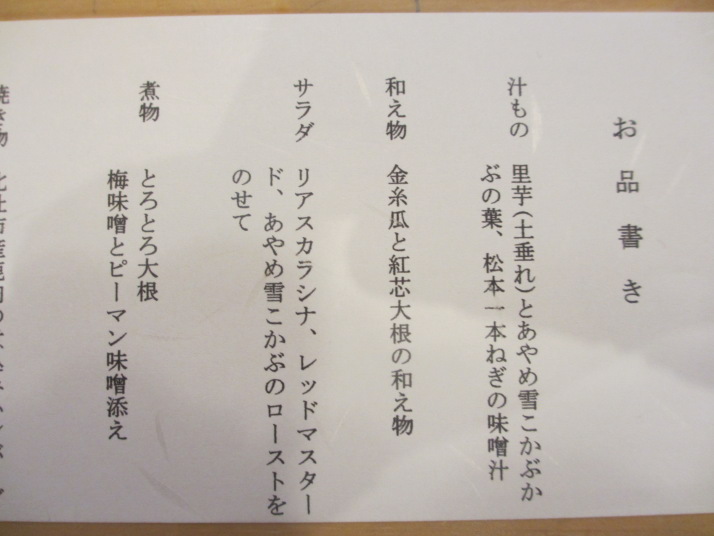 お品書き
汁もの　里芋(土垂れ)とあやめ雪こかぶか
ぶの葉、松本一本ねぎの味噌汁
和え物　金糸瓜と紅芯大根の和え物
サラダ　リアスカラシナ、レッドマスター
ド、あやめ雪こかぶのローストを
のせて
煮物　とろとろ大根
梅味噌とピーマン味噌添え
焼き物